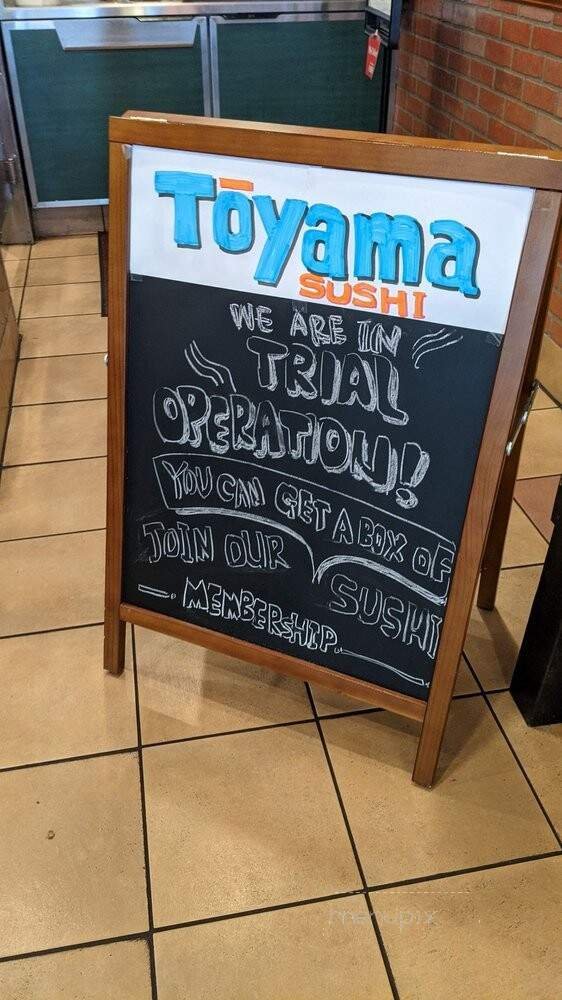 Tōyama
SUSHI
WE ARE IN
TRIAL
OPERATION!
YOU CAN GET A BOX OF
SUSHI
JOIN OUR
MEMBERSHIP.
menupix